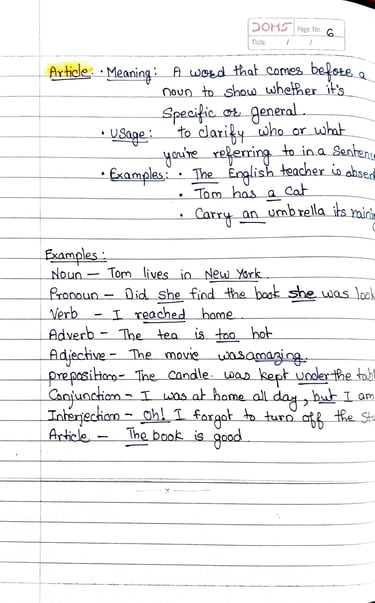 DOMS Page No. 6
Date / /
Article: · Meaning: A word that comes before a
noun to show whether it's
Specific or general.
· Usage: to clarify who or what
you're referring to in a Senten
· Examples: · The English teacher is absen
· Tom has a cat
· Carry an umbrella its raini
Examples:
Noun – Tom lives in New York.
Pronoun – Did she find the book she was look
Verb - I reached home.
Adverb – The tea is too hot
Adjective – The movie was amazing.
preposition – The candle was kept under the tabl
Conjunction – I was at home all day, but I am
Interjection – Oh! I forgot to turn off the St
Article – The book is good
x